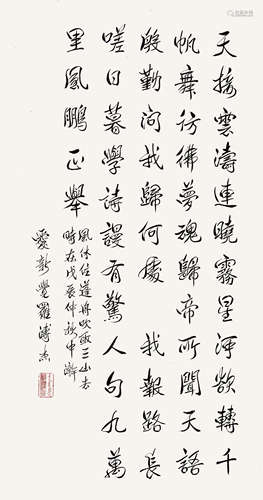 天接雲濤連曉霧星河欲轉千
帆舞彷彿夢魂歸帝所聞天語
殷勤問我歸何處 我報路長
嗟日暮學詩謾有驚人句九萬
里風鵬正舉
風休住蓬舟吹取三山去
時在戊辰仲秋中澣
愛新覺羅溥杰